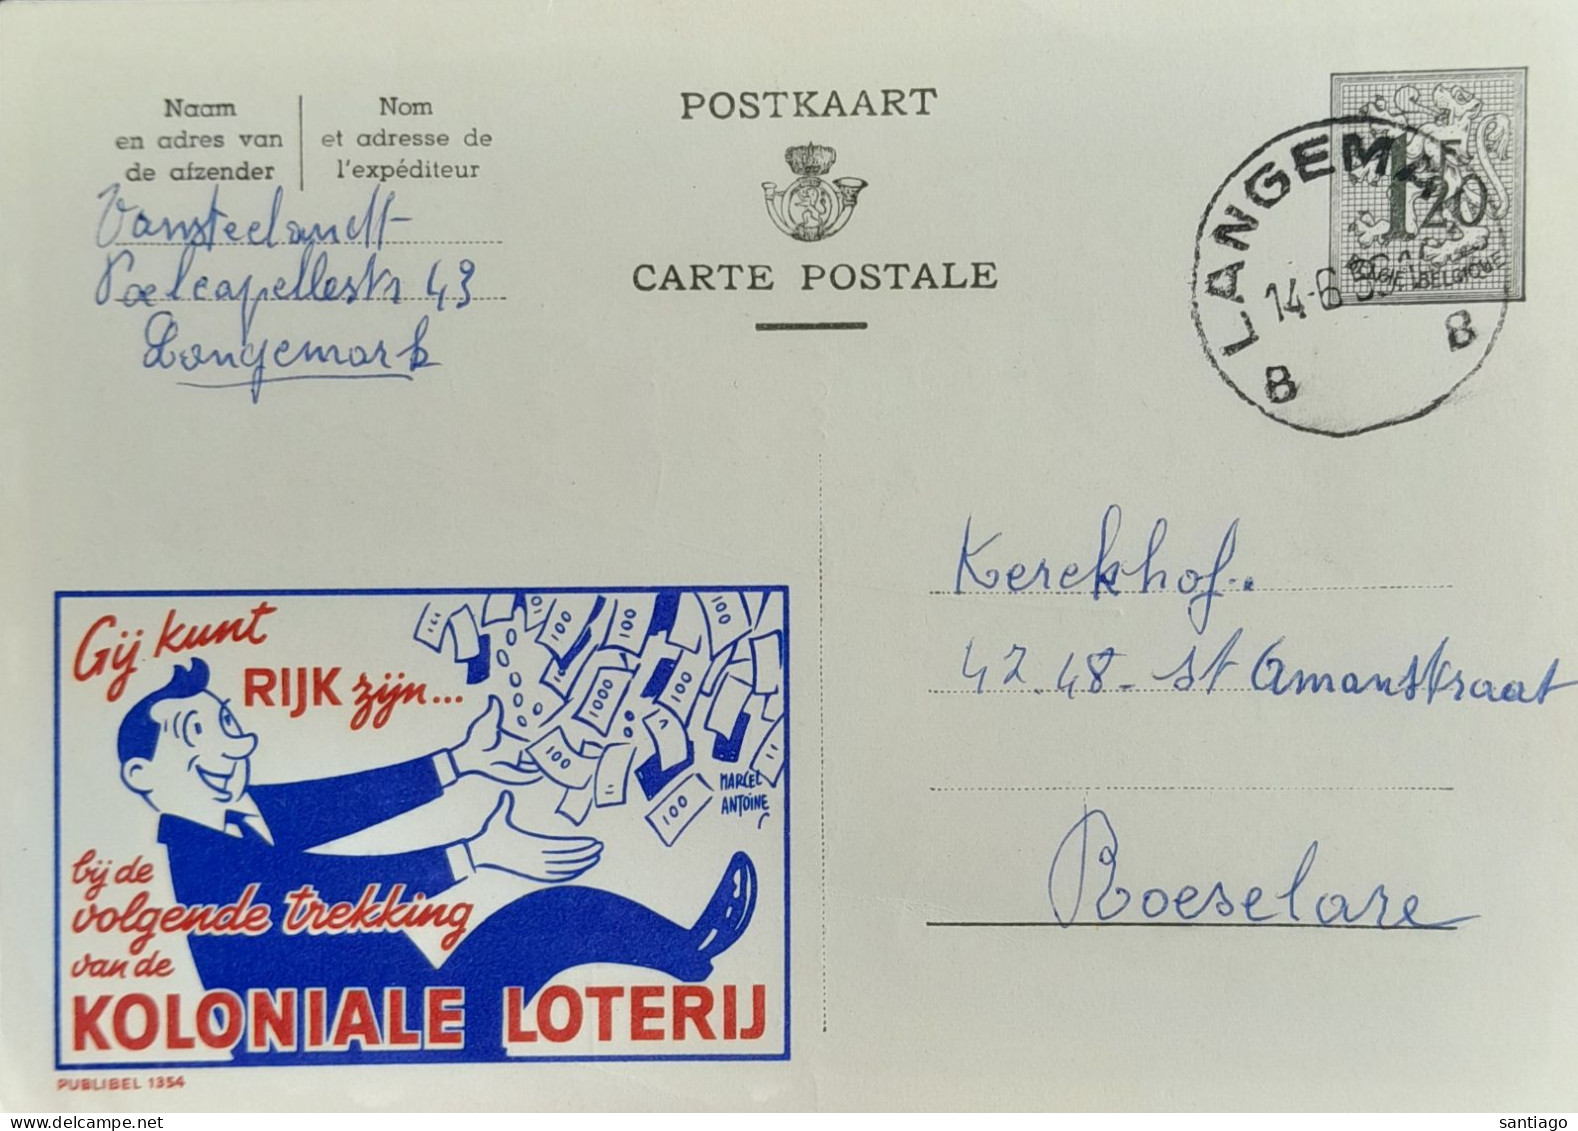 Naam
en adres van
de afzender
Nom
et adresse de
l'expéditeur
Vansteelandt
Poelcapellestr 43
Langemark
POSTKAART
CARTE POSTALE
1F20
BELGIE-BELGIQUE
LANGEMARK
14-6
8 8
Kerckhof.
42.48 - St Amanstraat
Roeselare
Gij kunt
RIJK zijn...
100 100 100
1000 100
100
100
MARCEL
ANTOINE
bij de
volgende trekking
van de
KOLONIALE LOTERIJ
PUBLIBEL 1354
santiago